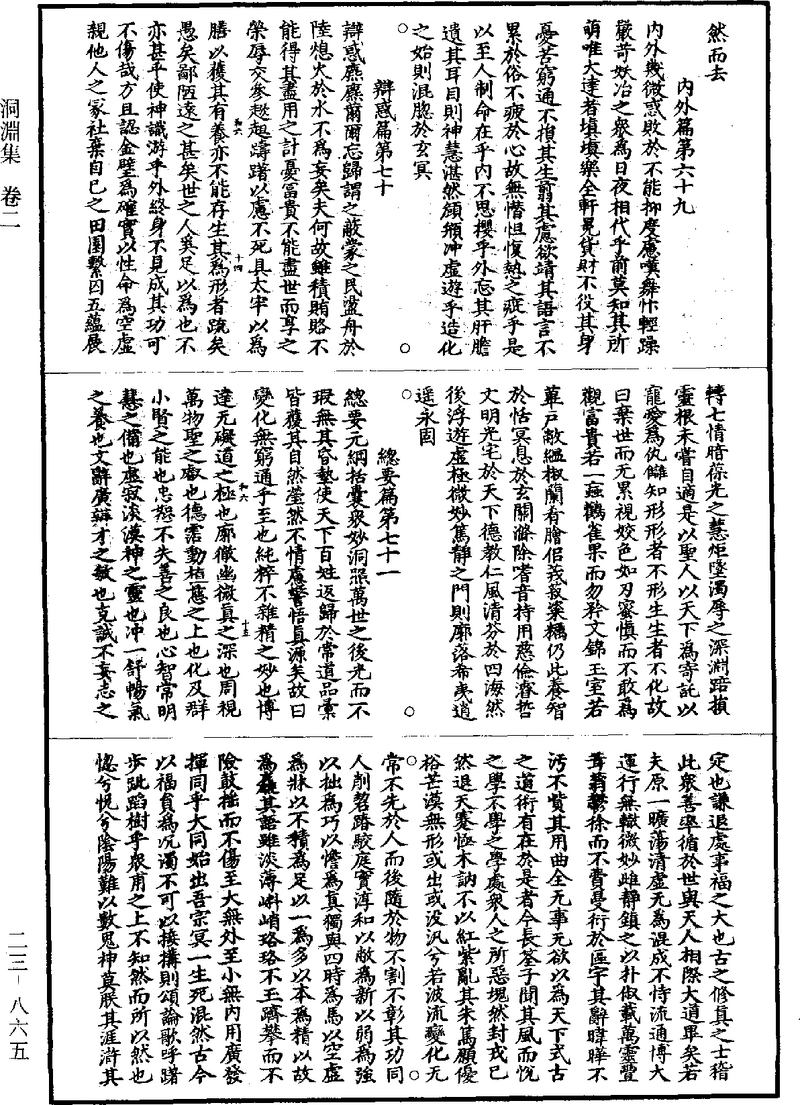 然而去
內外篇第六十九
內外幾微惑敗於不能抑度慮嘆舞忭輕躁
歡奇妖冶之衆為日夜相代乎前莫知其所
萌唯大達者填填樂全軒冕貨財不役其身
憂苦窮通不損其生翦其慮欲靖其語言不
累於俗不疲於心故無憯怛愎熱之疵乎是
以至人制命在乎內不思攖乎外忘其肝膽
遺其耳目則神慧湛然頎頯冲虛遊乎造化
之始則混脗於玄冥
辯惑篇第七十
辯惑麃麃爾爾忘歸謂之蔽蒙之民盪舟於
陸熄火於水不為妄矣夫何故雖積賄賂不
能得其盡用之計憂富貴不能盡世而享之
榮辱交參趑趄躊躇以慮不死具太牢以為
膳以獲其有養亦不能存生其為形者疏矣
愚矣鄙陋遠之甚矣世之人奚足以為也不
亦甚乎使神識游乎外終身不見成其功可
不傷哉方且認金璧為確實以性命為空虛
親他人之冢社棄自己之田園繫囚五蘊展
轉七情暗葆光之慧炬墜濁辱之深淵踣損
靈根未嘗自適是以聖人以天下為寄託以
寵愛為仇讎知形形者不形生生者不化故
曰棄世而无累視姣色如刃宻慎而不敢為
觀富貴若一蝱鸛雀果而勿矜文錦玉室若
蓽戶敝縕椒蘭有膾佀莪菽粢糲仍此養智
於恬冥息於玄關滌除嗜音持用慈儉濬哲
文明光宅於天下德教仁風清芬於四海然
後浮遊虛極微妙篤靜之門則廓落希夷逍
遥永固
總要篇第七十一
總要元綱括囊衆妙洞照萬世之後光而不
瑕無其昏墊使天下百姓返歸於常道品彙
皆獲其自然瑩然不情慮警悟真源矣故曰
變化無窮通乎至也純粹不雜精之妙也博
達无礙道之極也廓徹幽微真之深也周視
萬物聖之睿也德霑動植應之上也化及群
小賢之能也忠恕不失善之良也心智常明
慧之備也虛寂淡漠神之靈也冲一舒暢氣
之養也文辭廣辯才之敏也克誠不妄志之
定也謙退處事福之大也古之修真之士稽
此衆善率循於世與天人相際大道畢矣若
夫原一曠蕩清虛无為混成不恃流通博大
運行無轍微妙雌靜鎮之以朴俶載萬靈亹
而不費曼衍於區宇其辭暐曄不
污不貿其用曲全无事无欲以為天下式古
之道術有在於是者今長荃子聞其風而悅
之學不學之學處衆人之所惡塊然封戎已
然退天蹇恆木訥不以紅紫亂其朱篤願優
裕芒漠無形或出或没汎兮若波流變化无
常不先於人而後隨於物不割不彰其功同
人削礐踏駮庭實淳和以敝為新以弱為強
以拙為巧以憺為真獨與四時為馬以空虛
為牀以不積為足以一為多以本為精以故
為其語雖淡薄峭珞珞不玉躋攀而不
險鼓搖而不傷至大無外至小無內用廣發
揮同乎大同始出吾宗冥一生死混然古今
以福負為沉濁不可以接搆則頌論歌呼躇
步跐蹈樹乎衆甫之上不知然而所以然也
惚兮恍兮陰陽難以數鬼神莫朕其涯滸其
洞淵集 卷二
二三-八六五